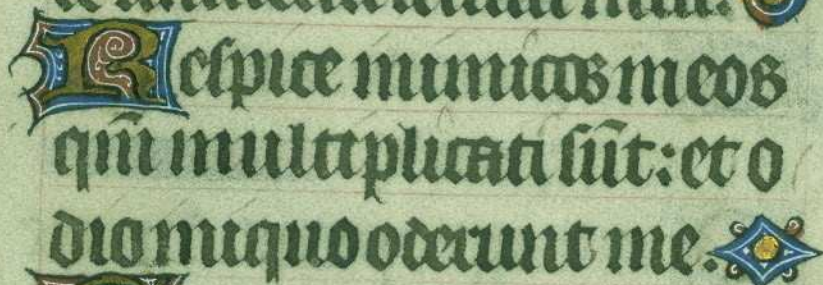 Respice inimicos meos
qm̄ multiplicati sūt: et o
dio iniquo oderunt me.